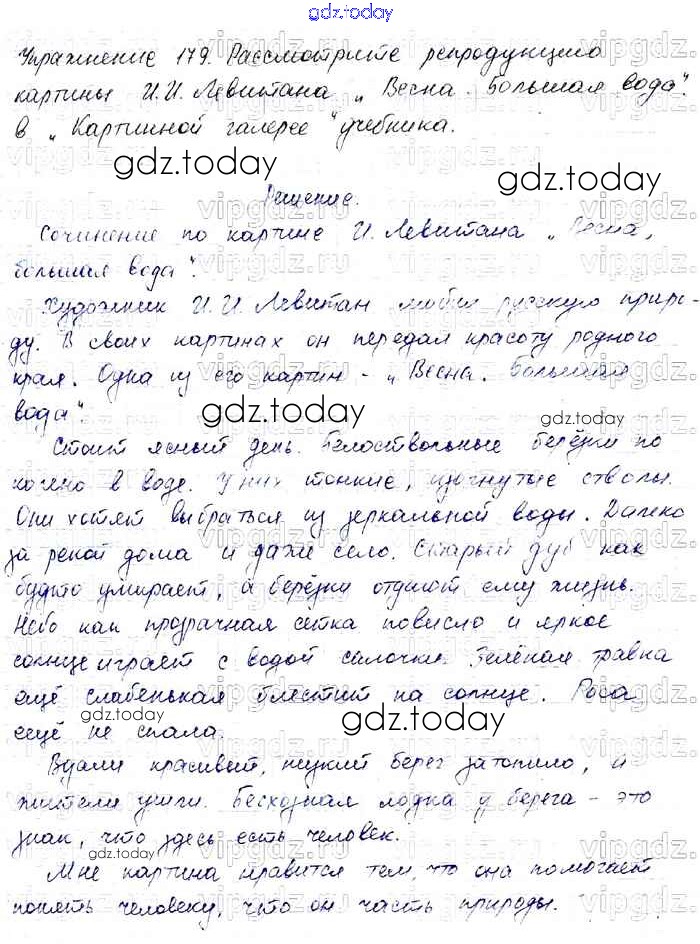 gdz.today
Упражнение 179. Рассмотрите репродукцию
картины И.И. Левитана „Весна. Большая вода"
в „Картинной галерее" учебника.
gdz.today
gdz.today
Решение.
Сочинение по картине И. Левитана „Весна,
большая вода".
Художник И.И. Левитан любил русскую приро-
ду. В своих картинах он передал красоту родного
края. Одна из его картин - „Весна. Большая
вода".
gdz.today
gdz.today
Стоит ясный день. Белоствольные берёзки по
колено в воде. У них тонкие, изогнутые стволы.
Они хотят выбраться из зеркальной воды. Далеко
за рекой дома и даже село. Старый дуб как
будто умирает, а берёзки отдают ему жизнь.
Небо как прозрачная сетка повисло и яркое
солнце играет с водой салочки. Зелёная травка
ещё слабенькая блестит на солнце. Роса
ещё не спала.
gdz.today
gdz.today
Вдали красивый, низкий берег затопило, и
жители ушли. Бесхозная лодка у берега - это
знак, что здесь есть человек.
gdz.today
gdz.today
Мне картина нравится тем, что она помогает
понять человеку, что он часть природы.